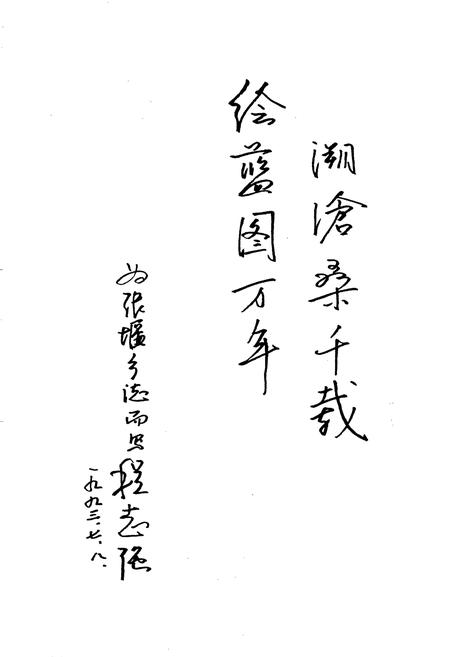 溯沧桑千载
绘蓝图万年
为张堰乡志而书
程志强
一九九三.七.八.